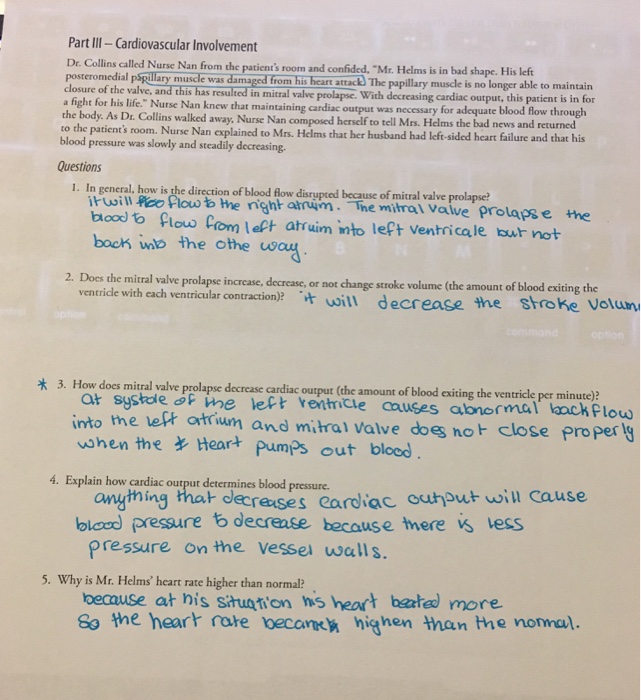 Part III – Cardiovascular Involvement
Dr. Collins called Nurse Nan from the patient's room and confided, "Mr. Helms is in bad shape. His left
posteromedial papillary muscle was damaged from his heart attack. The papillary muscle is no longer able to maintain
closure of the valve, and this has resulted in mitral valve prolapse. With decreasing cardiac output, this patient is in for
a fight for his life." Nurse Nan knew that maintaining cardiac output was necessary for adequate blood flow through
the body. As Dr. Collins walked away, Nurse Nan composed herself to tell Mrs. Helms the bad news and returned
to the patient's room. Nurse Nan explained to Mrs. Helms that her husband had left-sided heart failure and that his
blood pressure was slowly and steadily decreasing.
Questions
1. In general, how is the direction of blood flow disrupted because of mitral valve prolapse?
it will flow to the right atruim. The mitral valve prolapse the
blood to flow from left atruim into left ventricale but not
back into the othe way.
2. Does the mitral valve prolapse increase, decrease, or not change stroke volume (the amount of blood exiting the
ventricle with each ventricular contraction)? it will decrease the stroke volum
option command
command option
* 3. How does mitral valve prolapse decrease cardiac output (the amount of blood exiting the ventricle per minute)?
at systole of the left ventricle causes abnormal backflow
into the left atrium and mitral valve does not close properly
when the Heart pumps out blood.
4. Explain how cardiac output determines blood pressure.
anything that decreases cardiac output will cause
blood pressure to decrease because there is less
pressure on the vessel walls.
5. Why is Mr. Helms' heart rate higher than normal?
because at his situation his heart beated more
so the heart rate became highen than the normal.